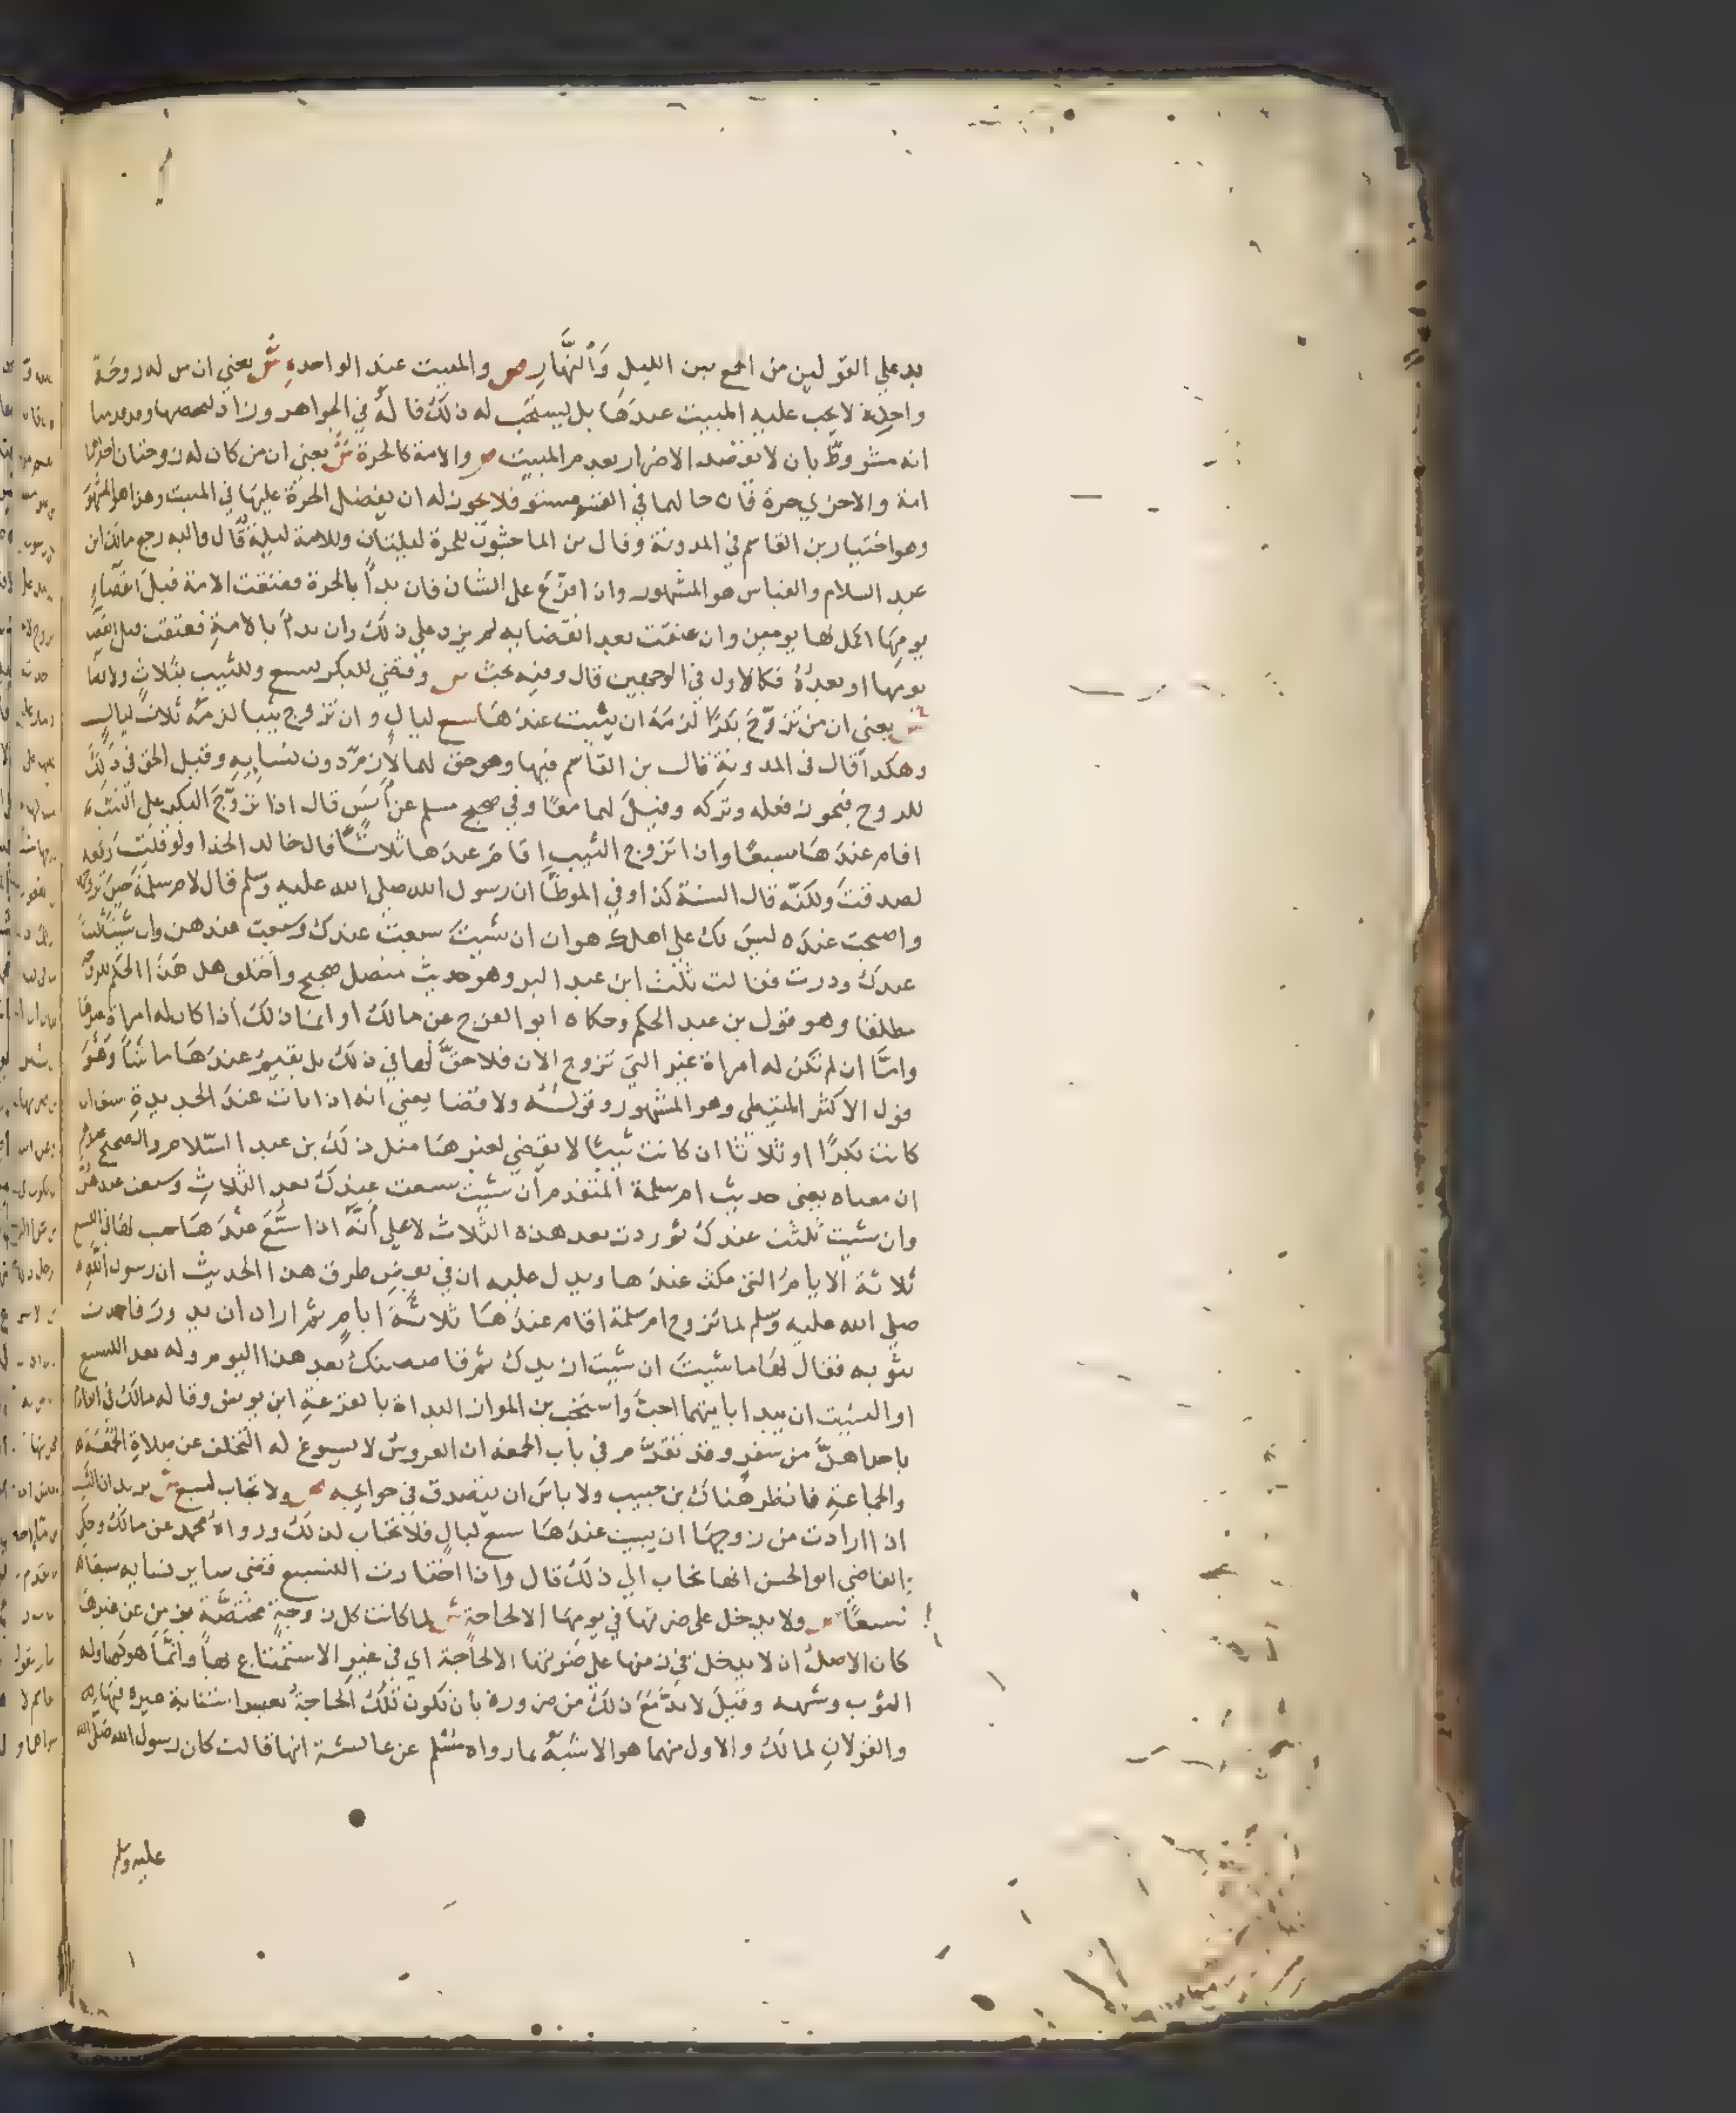 بد علي القولين من الجمع بين الليل والنهار ص والمبيت عند الواحدة ش يعني ان من له زوجة
واحدة لا يجب عليه المبيت عندها بل يستحب له ذلك قاله في الجواهر وزاد
انه مشروط بان لا يقصد الاضرار بعدم المبيت ص والامة كالحرة ش يعني ان من كان له زوجتان احداهما
امة والاخري حرة فان حالهما في القسم مستو فلا يجوز له ان يفضل الحرة عليها في المبيت وهذا هو المشهور
وهو اختيار بن القاسم في المدونة وقال بن الماجشون للحرة ليلتان وللامة ليلة قال واليه رجع مالك ابن
عبد السلام والقياس هو المشهور وان افرع على الشان فان بدأ بالحرة فعتقت الامة قبل انقضاء
يومها اكمل لها يومين وان عتقت بعد انقضايه لم يزد علي ذلك وان بدأ بالامة فعتقت قبل انقضا
يومها او بعده فكالاول في الوجهين قال وفيه بحث ص وقضي للبكر بسبع وللثيب بثلاث ولا قضا
ش يعني ان من تزوج بكرا لزمه ان يبيت عندها سبع ليال وان تزوج ثيبا لزمه ثلاث ليال
وهكذا قال في المدونة قال بن القاسم فيها وهو حق لهما لازم دون نسايه وقيل الحق في ذلك
للزوج فيجوز فعله وتركه وقيل لهما معا وفي صحيح مسلم عن أنس قال اذا تزوج البكر علي الثيب
اقام عندها سبعا واذا تزوج الثيب اقام عندها ثلاثا قال خالد الحذا ولو قلت رفعه
لصدقت ولكنه قال السنة كذا وفي الموطا ان رسول الله صلي الله عليه وسلم قال لام سلمة حين تزوجها
واصبحت عنده ليس بك علي اهلك هوان ان شيت سبعت عندك وسبعت عندهن وان شيت ثلثت
عندك ودرت فقالت ثلث ابن عبد البر وهو حديث متصل صحيح واختلف هل هذا الحكم للزوجة
مطلقا وهو قول بن عبد الحكم وحكاه ابو الفرج عن مالك او انما ذلك اذا كان له امراة غيرها
وامّا ان لم تكن له امراة غير التي تزوج الان فلا حقّ لها في ذلك بل يقيم عندها ما شا وهو
قول الاكثر المتيطي وهو المشهور وقوله ولا قضا يعني انه اذا بات عند الجديدة سبعا ان
كانت بكرًا او ثلاثا ان كانت ثيبًا لا يقضي لغيرها مثل ذلك بن عبد السّلام والصحيح
ان معناه يعني حديث ام سلمة المتقدم ان شيت سبعت عندك بعد الثلاث وسبعت عندهن
وان شيت ثلثت عندك ثم دردت بعد هذه الثلاث لا علي أنّه اذا سبّع عندها حسب لها في السبع
ثلاثة الايام التي مكث عندها ويدل عليه ان في بعض طرق هذا الحديث ان رسول الله
صلي الله عليه وسلم لما تزوج ام سلمة اقام عندها ثلاثة ايام ثم اراد ان يدور فاخذت
بثوبه فقال لها ما شيت ان شيت ان نزيدك ثم قاصصتك بعد هذا اليوم وله بعد التسبيع
او التثليث ان يبدا بايتهما احب واستحب بن المواز البداة بالقرعة ابن يونس وقاله مالك في
باحداهنّ من سفر وقد تقدّم في باب الجمعة ان العروس لا يسوغ له التخلف عن صلاة الجمعة
والجماعة فانظر هناك بن حبيب ولا باس ان يتصرف في حوايجه ص ولا تجاب لسبع ش يريد ان الثيب
اذا ارادت من زوجها ان يبيت عندها سبع ليال فلا تجاب لذلك ورواه محمد عن مالك وحكي
القاضي ابو الحسن انها تجاب الي ذلك قال واذا اختارت التسبيع قضي ساير نسايه سبعا
سبعًا ص ولا يدخل على ضرتها في يومها الا لحاجة ش لما كانت كل زوجة مختصّة بزمن عن غيرها
كان الاصل ان لا يدخل في زمنها علي ضرتها الا لحاجة اي في غير الاستمتاع بها وانّما هو كمناولة
الثوب وشبهه وقيل لا بدّ مع ذلك من ضرورة بان تكون تلك الحاجة
والقولان لمالك والاول منهما هو الاشبه بما رواه مسلم عن عائشة انها قالت كان رسول الله صلى الله
عليه وسلم